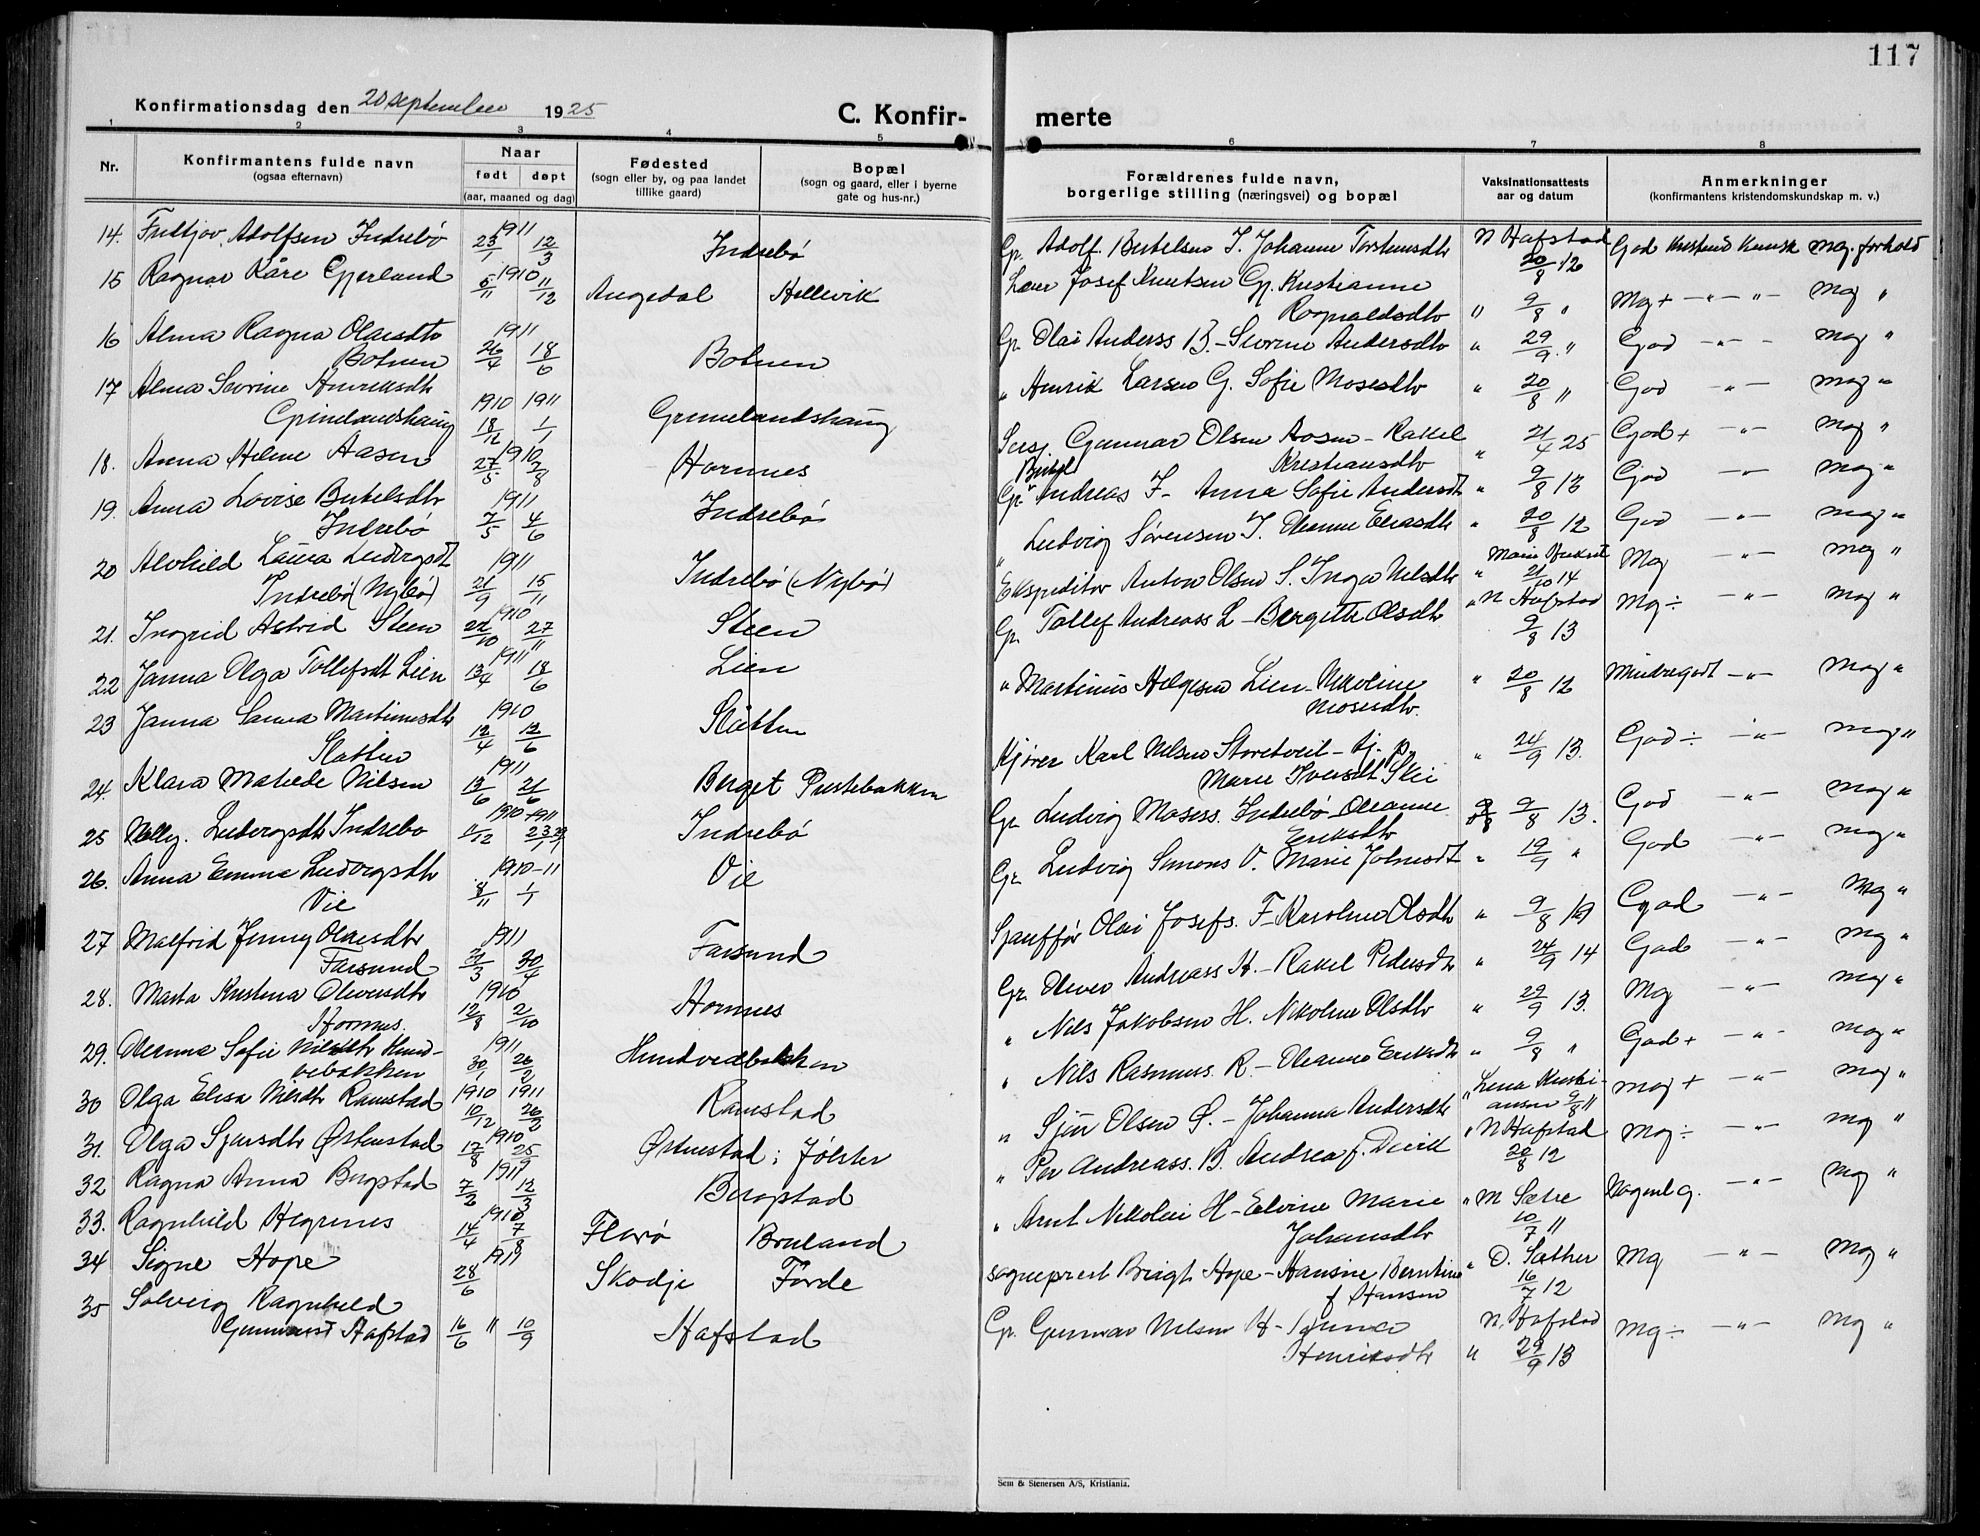 117
Konfirmationsdag den 20 september 1925
C. Konfir-
merte
1 2 3 4 5 6 7 8
Nr.
Konfirmantens fulde navn
(ogsaa efternavn)
Naar
født døpt
(aar, maaned og dag)
Fødested
(sogn eller by, og paa landet
tillike gaard)
Bopæl
(sogn og gaard, eller i byerne
gate og hus-nr.)
Forældrenes fulde navn,
borgerlige stilling (næringsvei) og bopæl
Vaksinationsattests
aar og datum
Anmerkninger
(konfirmantens kristendomskundskap m. v.)
14. Fridtjov Adolfsen Indrebø 1911 23/1 12/3 Indrebø Gr. Adolf Bertelsen I. Johanne Torstensdtr N Hafstad 20/8 12 God kristend kunsk meg. forhold
15 Ragnar Kåre Gjerland 1910 5/11 11/12 Angedal Hellevik Lærer Josef Knutsen Gj. Kristianne
Rognaldsdtr " 9/8 " Mg+ -"- "- Meg "
16 Alma Ragna Olaisdtr
Botnen 1911 26/4 18/6 Botnen Gr. Olai Anderss B. - Severine Andersdtr " 29/9 " God -"- Meg "
17 Alma Severine Henriksdtr
Grimelandshaug 1910 18/12 1911 1/1 Grimelandshaug " Henrik Larsen G. Sofie Mosesdtr " 20/8 " God -"- Meg "
18. Anna Helene Aasen 1910 27/5 7/8 Hornnes Sersj Gunnar Olsen Aasen - Rakel
Kristiansdtr " 21/4 25 God+ -"- Meg "
19. Anna Lovise Bertelsdtr
Indrebø 1911 7/5 4/6 Indrebø Gr. Bertel Andreas I - Anna Sofie Andersdt " 9/8 13 God -"- Meg "
20 Alvhild Laura Ludvigsdt
Indrebø (Nybø) 1911 21/9 15/11 Indrebø (Nybø) " Ludvig Sørensen I. Oleanne Eliasdtr " 20/8 12 God -"- Meg "
21. Ingrid Astrid Steen 1910 22/10 27/11 Steen Ekspeditør Anton Olsen S. Inga Nilsdtr " 21/10 14 Mg -"- Meg "
22 Janna Olga Tollefsdt Lien 1911 13/4 18/6 Lien Gr. Tollef Andreass L - Bergitte Olsdtr " N Hafstad
9/8 13 Mg÷ -"- Meg "
23 Janna Laura Martinusdtr
Slåtten 1910 12/4 12/6 Slåtten " Martinus Helgesen Lien - Nikoline
Mosesdtr. " 20/8 12 Mindregodt -"- Meg "
24. Klara Matilde Nilsen 1911 13/6 21/6 Berget Prestebakken Kjører Karl Nilsen Storetveit - tj. p.
Marie Iversdt Skei " 24/9 13. God÷ -"- Meg "
25 Nelly Ludvigsdt Indrebø 1910 11/12 1911 Indrebø Gr. Ludvig Moses. Indrebø Oleanne
Eriksdtr 9/8 13. God -"- Meg "
26. Anna Emma Ludvigsdtr
Vie 1910-11 8/11 1/1 Vie Gr. Ludvig Simons V. Marie Johnsdt " 19/9 " God -"- Meg "
27 Malfrid Jenny Olaisdtr
Farsund 1911 31/3 30/4 Farsund Sjauffør Olai Josefs. F - Karoline Olsdtr " 9/8 19 God -"- Meg "
28. Marta Kristina Oliversdtr
Hornnes. 1910 12/8 2/10 Hornnes Gr. Oliver Andreass H. - Rakel Pedersdtr " 24/9 14 God -"- Meg "
29. Oleanne Sofie Nilsdtr Hund-
vebakken 1911 30/1 26/2 Hundvebakken " Nils Jakobsen H. Nikoline Olsdtr " 29/9 13. Mg -"- Meg "
30 Olga Elisa Nilsdtr Ramstad 1910 10/12 1911 26/3 Ramstad " Nils Rasmus. R. - Oleanne Eriksdtr " 9/8 " God+ -"- Meg "
31. Olga Sjursdtr Østenstad 1910 17/8 25/9 Østenstad i Jølster " Sjur Olsen Ø. - Johanna Andersdtr " Lena Kristi-
ansen 9/8 11 Meg+ -"- Meg "
32 Ragna Anna Bergstad 1911 7/2 12/3 Bergstad " Per Andreass. B. Andrea f. Devik " N Hafstad
20/8 12 Meg÷ -"- Meg "
33. Ragnhild Hegrenes 1910 14/4 7/8 Florø Bruland " Arnt Nikolai H - Elvine Marie
Johansdtr " M Sætre
10/7 11 Nogenl g. -"- Meg "
34 Signe Hope 1911 28/6 Skodje Førde sogneprest Brigt Hope - Hansine Berntine
f Hansen " O. Sæther
16/7 12 Mg -"- Meg "
35 Solveig Ragnhild
Gunnarsdt Hafstad 16/6 " 10/9 Hafstad Gr. Gunnar Nilsen H -
Henriksdtr N. Hafstad
" 29/9 13 Mg÷ -"- Meg "
Sem & Stenersen A/S, Kristiania.